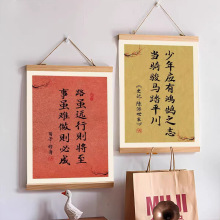 路虽远行则将至
事虽难做则必成
荀子·修身
少年应有鸿鹄之志
当骑骏马踏平川